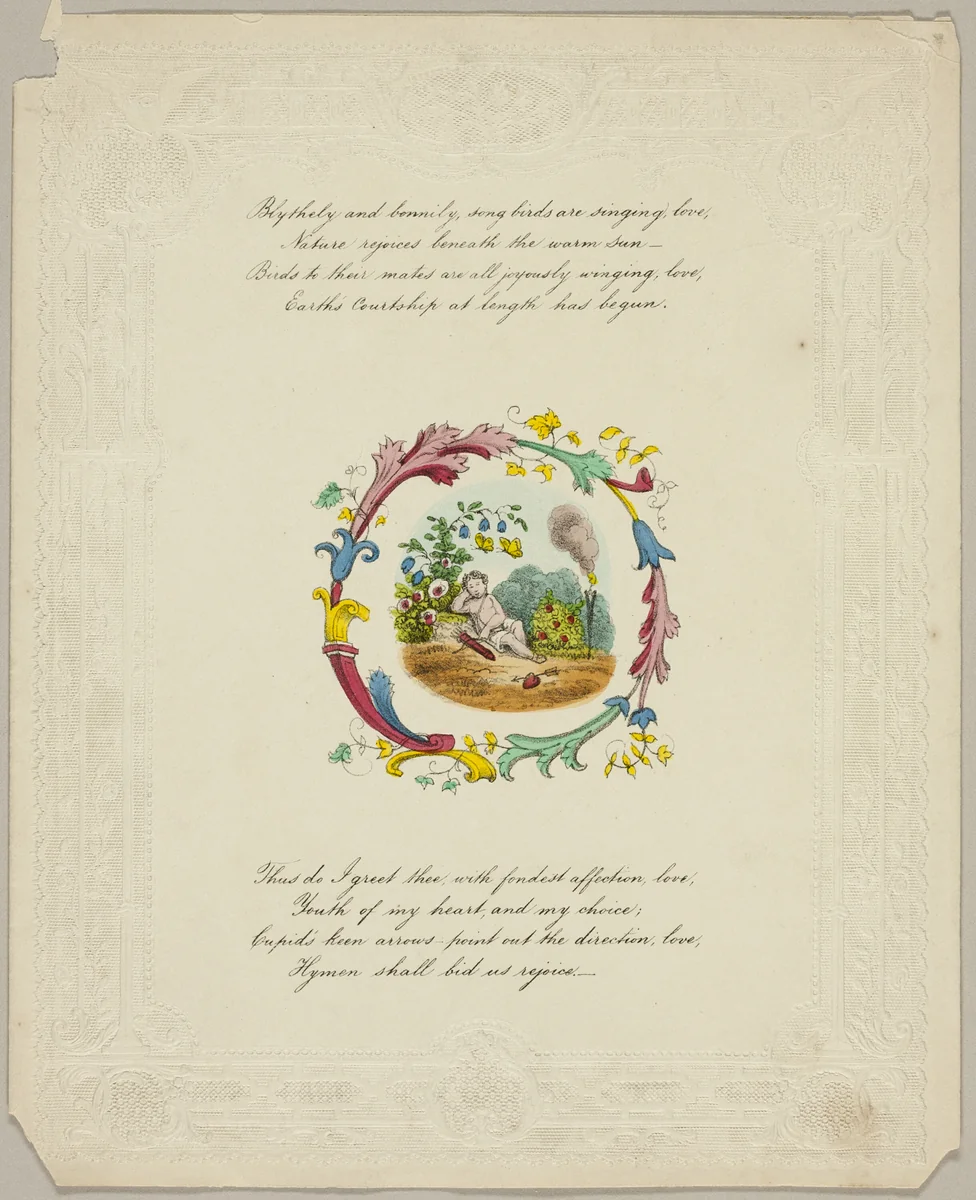 Blythely and bonnily, song birds are singing, love,
Nature rejoices beneath the warm sun—
Birds to their mates are all joyously winging, love,
Earth's Courtship at length has begun.
Thus do I greet thee, with fondest affection, love,
Youth of my heart, and my choice;
Cupid's keen arrows point out the direction, love,
Hymen shall bid us rejoice.—